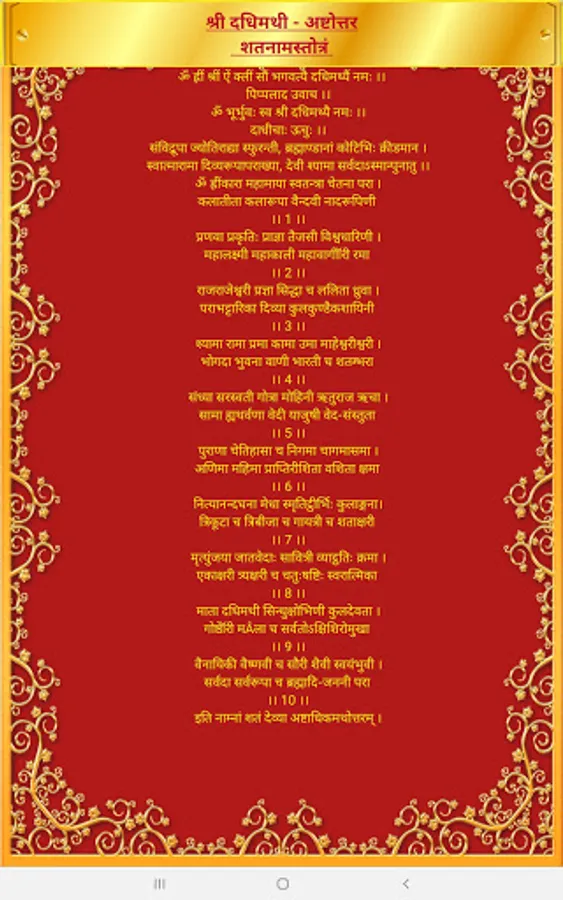 श्री दधिमथी - अष्टोत्तर
शतनामस्तोत्रं
ॐ ह्रीं श्रीं ऐं क्लीं सौं भगवत्यै दधिमथ्यै नमः ।।
पिप्पलाद उवाच ।।
ॐ भूर्भुवः स्व श्री दधिमथ्यै नमः ।।
दाधीचाः ऊचुः ।।
संविद्रूपा ज्योतिराद्या स्फुरन्ती, ब्रह्माण्डानां कोटिभिः क्रीडमान ।
स्वात्मारामा दिव्यरूपापराख्या, देवी श्यामा सर्वदाऽस्मान्पुनातु ।।
ॐ ह्रींकारा महामाया स्वतन्त्रा चेतना परा ।
कलातीता कलारूपा वैन्दवी नादरूपिणी
।। 1 ।।
प्रणवा प्रकृतिः प्राज्ञा तैजसी विश्वधारिणी ।
महालक्ष्मी महाकाली महावागीॉरी रमा
।। 2 ।।
राजराजेश्वरी प्रज्ञा सिद्धा च ललिता ध्रुवा ।
पराभट्टारिका दिव्या कुलकुण्डैकशायिनी
।। 3 ।।
श्यामा रामा प्रमा कामा उमा माहेश्वरीश्वरी ।
भोगदा भुवना वाणी भारती च शतम्भरा
।। 4 ।।
संध्या सरस्वती गोत्रा मोहिनी ऋतुराज ऋचा ।
सामा ह्यथर्वणा वेदी याजुषी वेद-संस्तुता
।। 5 ।।
पुराणा चेतिहासा च निगमा चागमासमा ।
अणिमा महिमा प्राप्तिरीशिता वशिता क्षमा
।। 6 ।।
नित्यानन्दघना मेधा स्मृतिर्द्वीर्भिः कुलाङ्गना।
त्रिकूटा च त्रिबीजा च गायत्री च शताक्षरी
।। 7 ।।
मृत्युंजया जातवेदाः सावित्री व्याहृतिः क्रमा ।
एकाक्षरी त्र्यक्षरी च चतुःषष्टिः स्वरात्मिका
।। 8 ।।
माता दधिमथी सिन्धुक्षोभिणी कुलदेवता ।
गोष्ठेॉरी मÅला च सर्वतोऽक्षिशिरोमुखा
।। 9 ।।
वैनायिकी वैष्णवी च सौरी शैवी स्वयंभुवी ।
सर्वदा सर्वरूपा च ब्रह्मादि-जननी परा
।। 10 ।।
इति नाम्नां शतं देव्या अष्टाधिकमथोत्तरम् ।